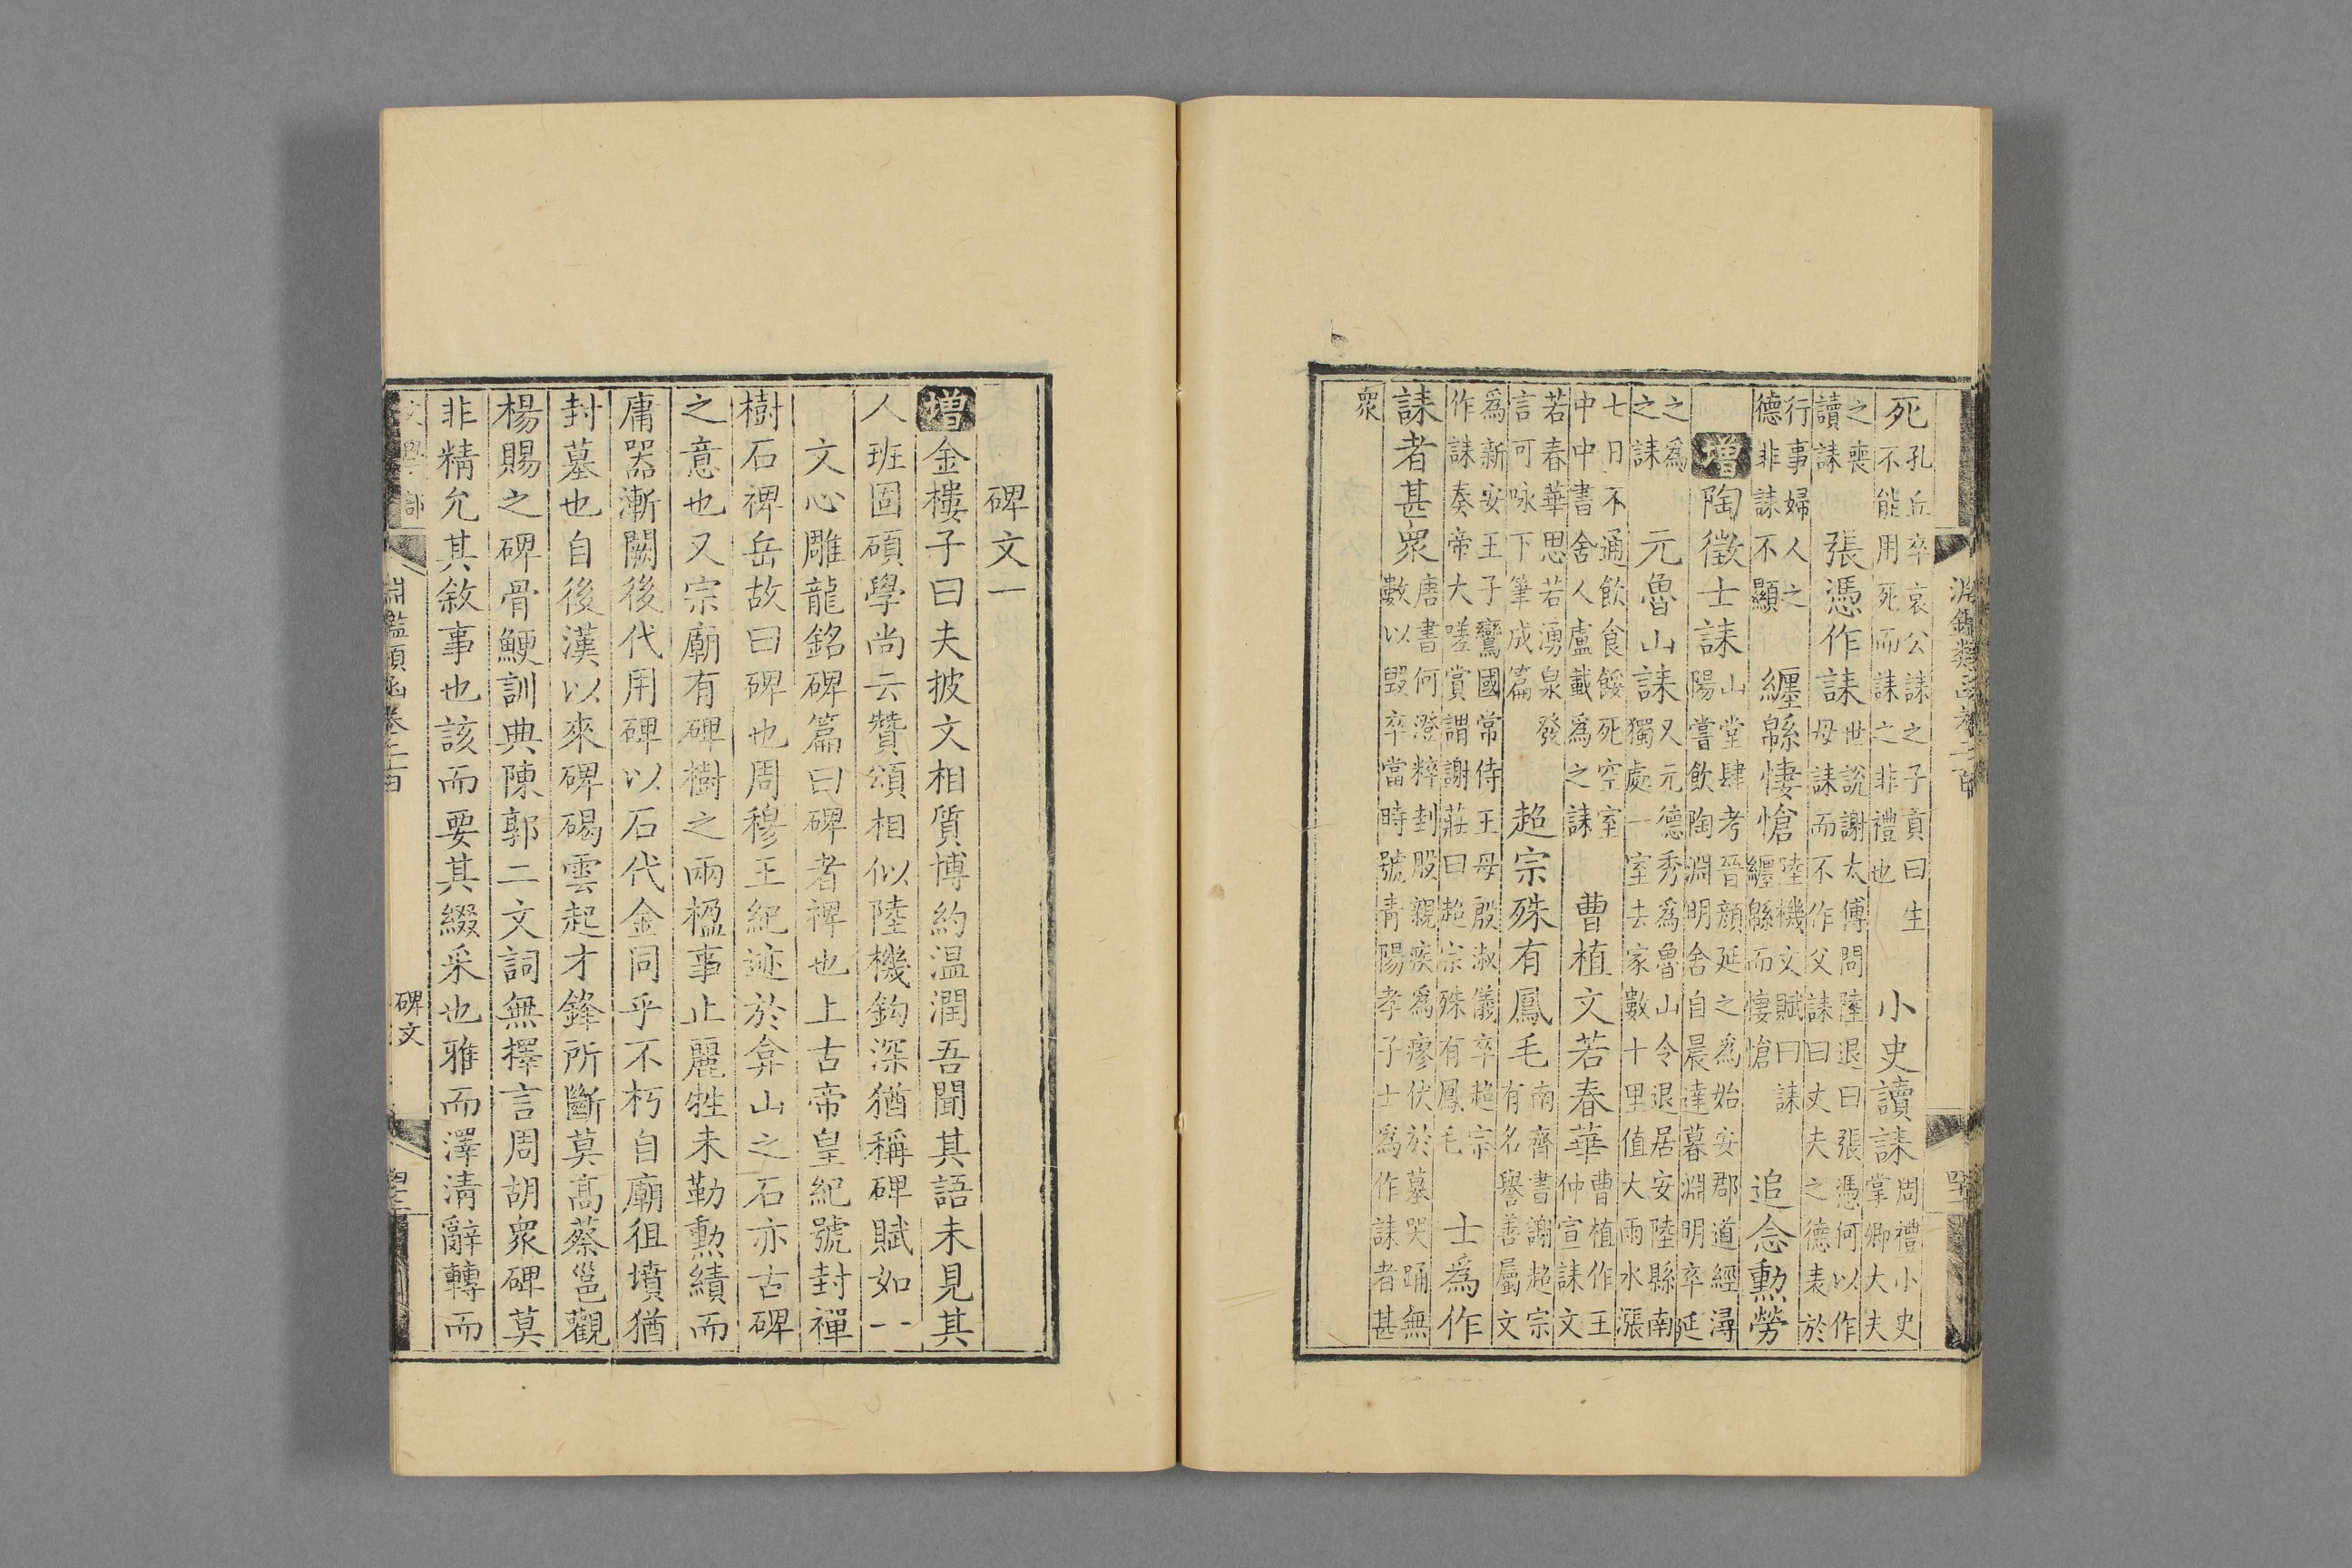 淵鑑類函卷二百
死孔丘卒哀公誄之子貢曰生不能用死而誄之非禮也　小史讀誄周禮小史掌卿大夫
之喪讀誄　張憑作誄世說謝太傅問陸退曰張憑何以作母誄而不作父誄曰丈夫之德表於
行事婦人之德非誄不顯　纏緜悽愴陸機文賦曰誄纏緜而悽愴　追念勲勞
增陶徵士誄山堂肆考晉顔延之為始安郡道經潯陽嘗飲陶淵明舍自晨達暮淵明卒延
之為之誄　元魯山誄又元德秀爲魯山令退居安陸縣南獨處一室去家數十里值大雨水漲
七日不通飲食餒死空室中中書舍人盧載爲之誄　曹植文若春華曹植作王仲宣誄文
若春華思若湧泉發言可咏下筆成篇　超宗殊有鳳毛南齊書謝超宗有名譽善屬文
爲新安王子鸞國常侍王母殷淑儀卒超宗作誄奏帝大嗟賞謂謝莊曰超宗殊有鳳毛　士爲作
誄者甚衆唐書何澄粹封股親疾爲瘳伏於墓哭踊無數以毀卒當時號青陽孝子士爲作誄者甚
衆
碑文一
增金樓子曰夫披文相質博約温潤吾聞其語未見其
人班固碩學尚云贊頌相似陸機鈎深猶稱碑賦如一
文心雕龍銘碑篇曰碑者裨也上古帝皇紀號封禪
樹石裨岳故曰碑也周穆王紀迹於弇山之石亦古碑
之意也又宗廟有碑樹之兩楹事止麗牲未勒勳績而
庸器漸闕後代用碑以石代金同乎不朽自廟徂墳猶
封墓也自後漢以來碑碣雲起才鋒所斷莫高蔡邕觀
楊賜之碑骨鯁訓典陳郭二文詞無擇言周胡衆碑莫
非精允其敘事也該而要其綴采也雅而澤清辭轉而
文學部　淵鑑類函卷二百　碑文